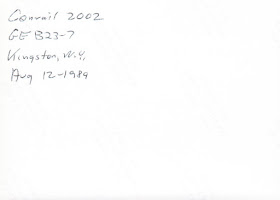 Convail 2002
GE B23-7
Kingston, N.Y,
Aug 12-1989